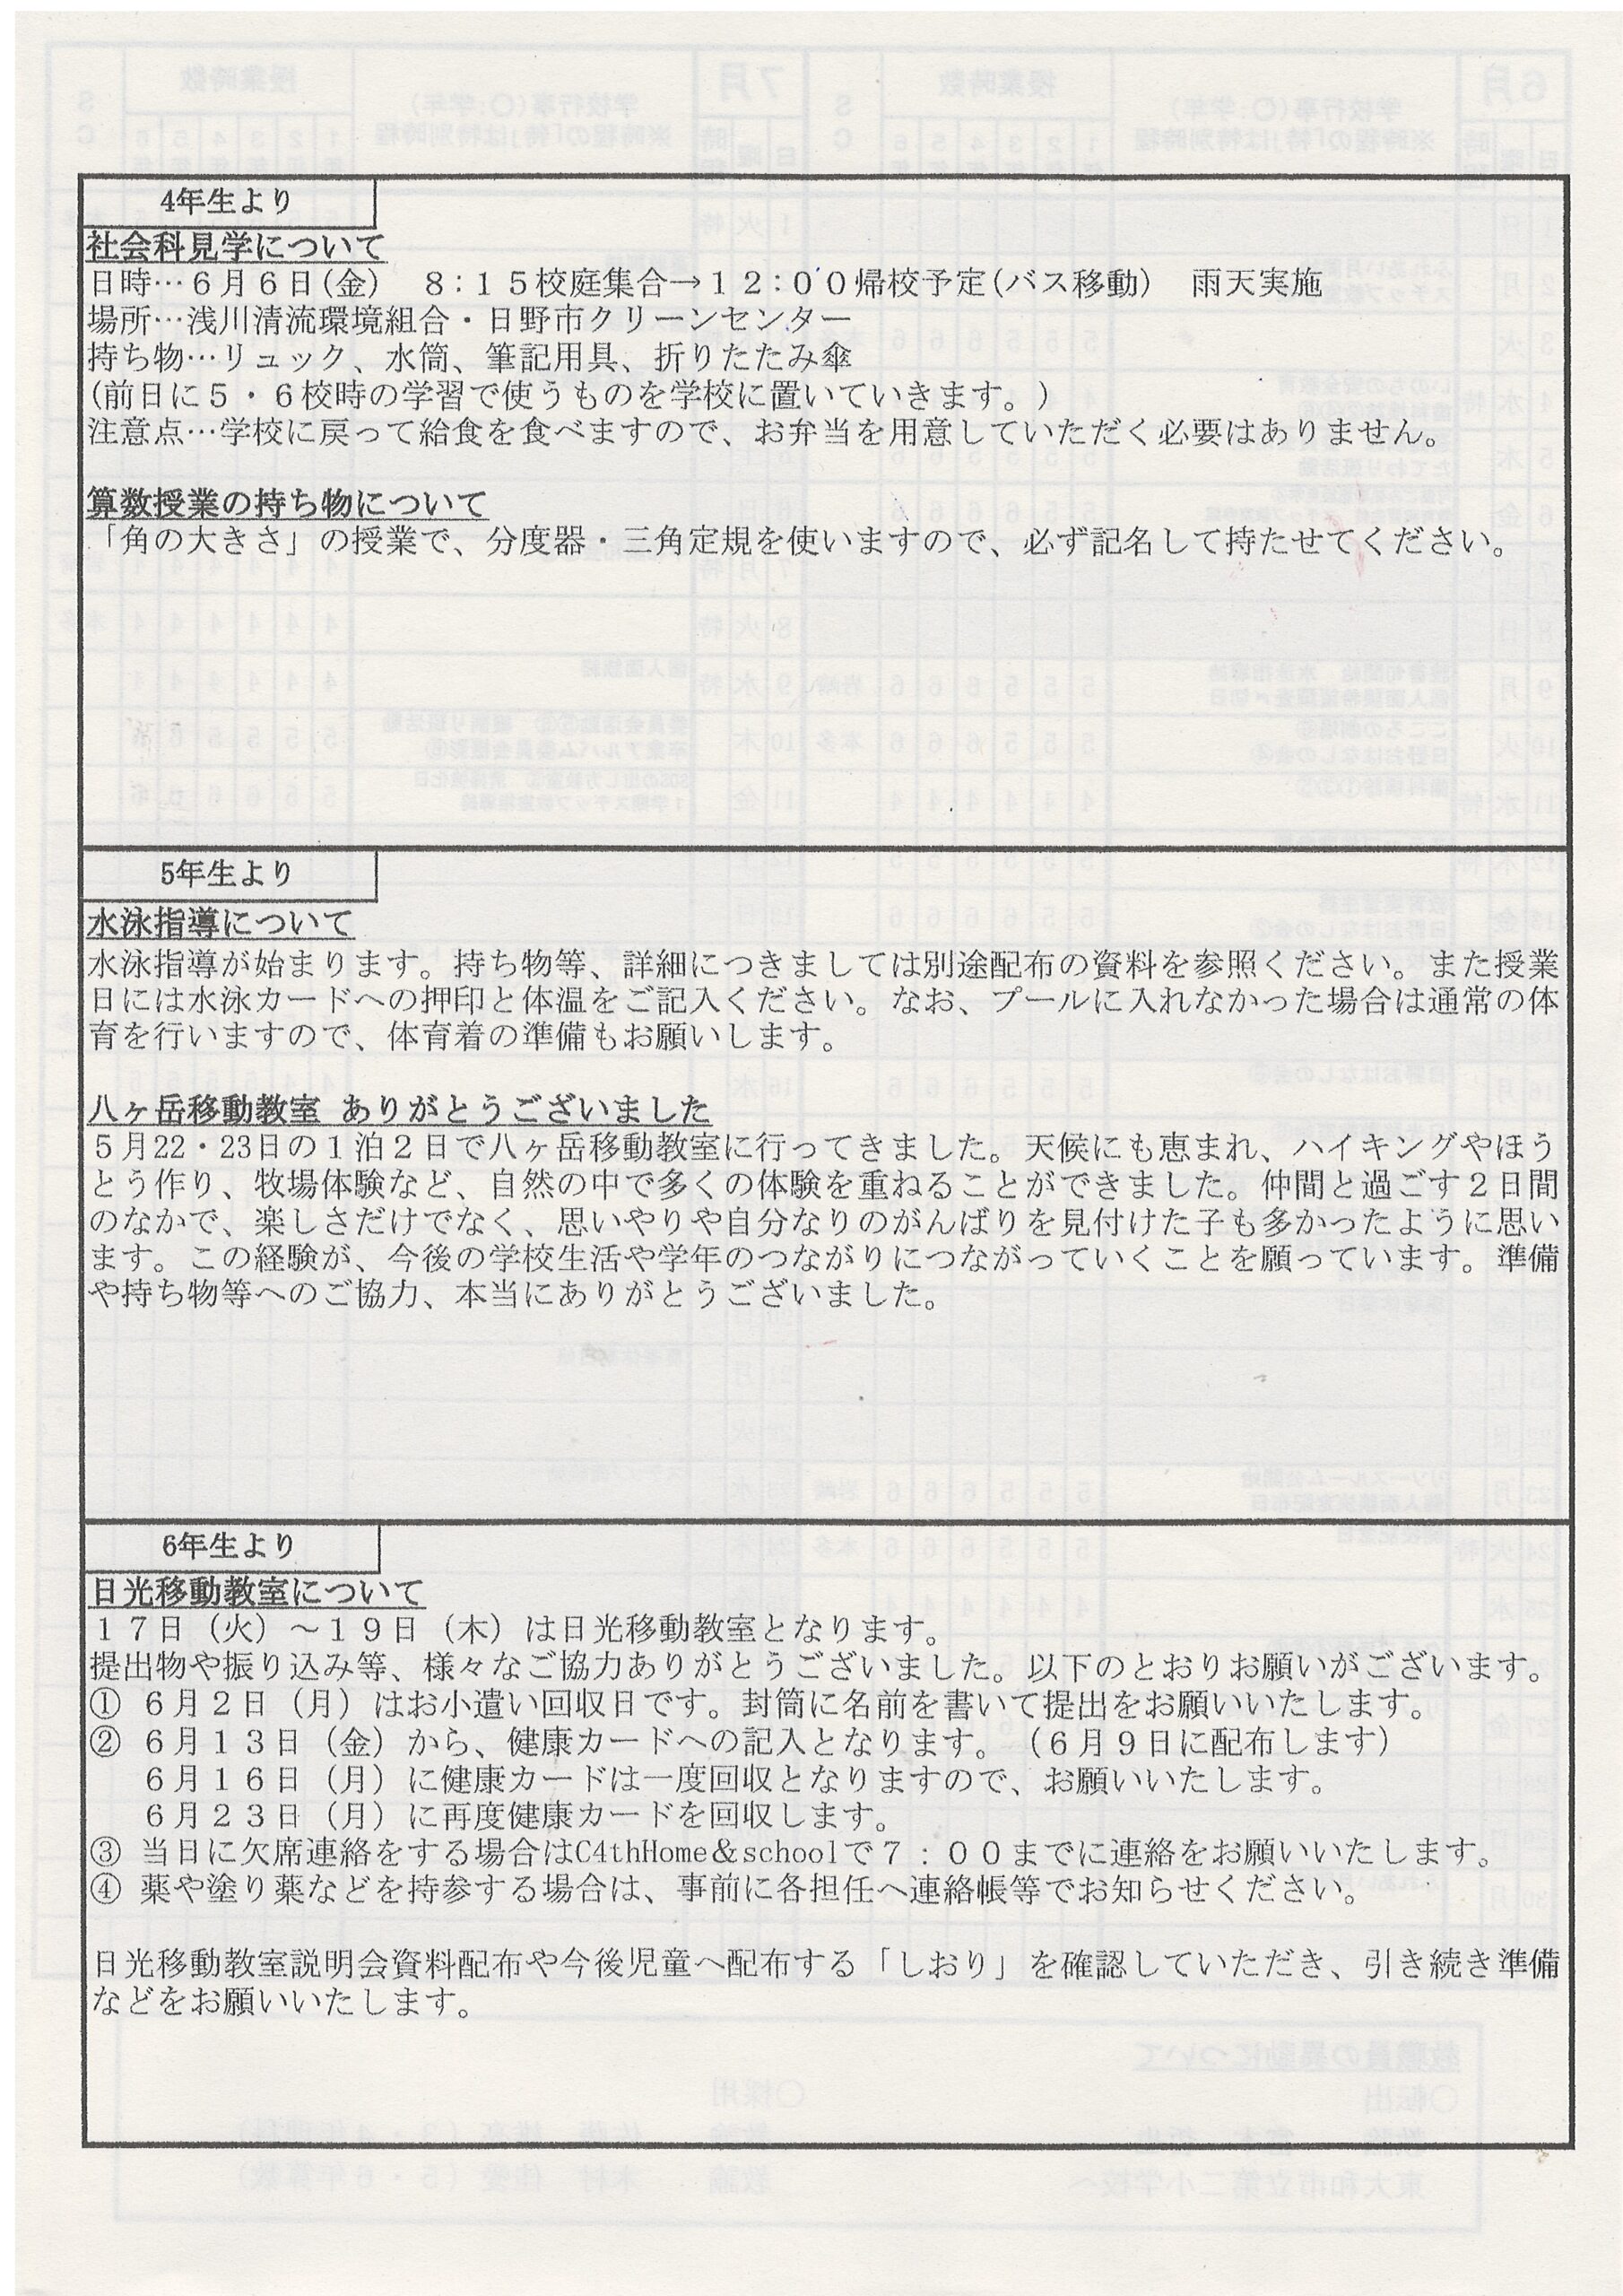 4年生より
社会科見学について
日時…６月６日(金)　８:１５校庭集合→１２:００帰校予定(バス移動)　雨天実施
場所…浅川清流環境組合・日野市クリーンセンター
持ち物…リュック、水筒、筆記用具、折りたたみ傘
(前日に５・６校時の学習で使うものを学校に置いていきます。)
注意点…学校に戻って給食を食べますので、お弁当を用意していただく必要はありません。
算数授業の持ち物について
「角の大きさ」の授業で、分度器・三角定規を使いますので、必ず記名して持たせてください。
5年生より
水泳指導について
水泳指導が始まります。持ち物等、詳細につきましては別途配布の資料を参照ください。また授業
日には水泳カードへの押印と体温をご記入ください。なお、プールに入れなかった場合は通常の体
育を行いますので、体育着の準備もお願いします。
八ヶ岳移動教室 ありがとうございました
５月22・23日の１泊２日で八ヶ岳移動教室に行ってきました。天候にも恵まれ、ハイキングやほう
とう作り、牧場体験など、自然の中で多くの体験を重ねることができました。仲間と過ごす２日間
のなかで、楽しさだけでなく、思いやりや自分なりのがんばりを見付けた子も多かったように思い
ます。この経験が、今後の学校生活や学年のつながりにつながっていくことを願っています。準備
や持ち物等へのご協力、本当にありがとうございました。
6年生より
日光移動教室について
１７日（火）～１９日（木）は日光移動教室となります。
提出物や振り込み等、様々なご協力ありがとうございました。以下のとおりお願いがございます。
① ６月２日（月）はお小遣い回収日です。封筒に名前を書いて提出をお願いいたします。
② ６月１３日（金）から、健康カードへの記入となります。（６月９日に配布します）
６月１６日（月）に健康カードは一度回収となりますので、お願いいたします。
６月２３日（月）に再度健康カードを回収します。
③ 当日に欠席連絡をする場合はC4thHome＆schoolで７：００までに連絡をお願いいたします。
④ 薬や塗り薬などを持参する場合は、事前に各担任へ連絡帳等でお知らせください。
日光移動教室説明会資料配布や今後児童へ配布する「しおり」を確認していただき、引き続き準備
などをお願いいたします。